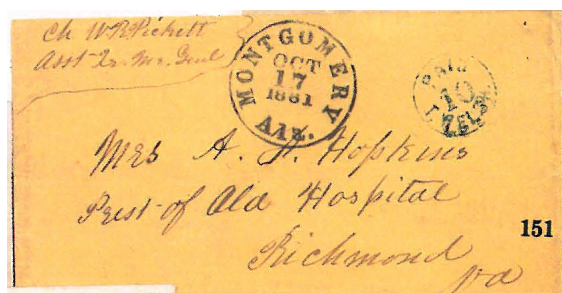 Ch W R Pickett
Asst Qr. Mr. Genl
MONTGOMERY
OCT
17
1861
Ala.
PAID
10
Mrs A. F. Hopkins
Prest of Ala Hospital
151
Richmond
Va